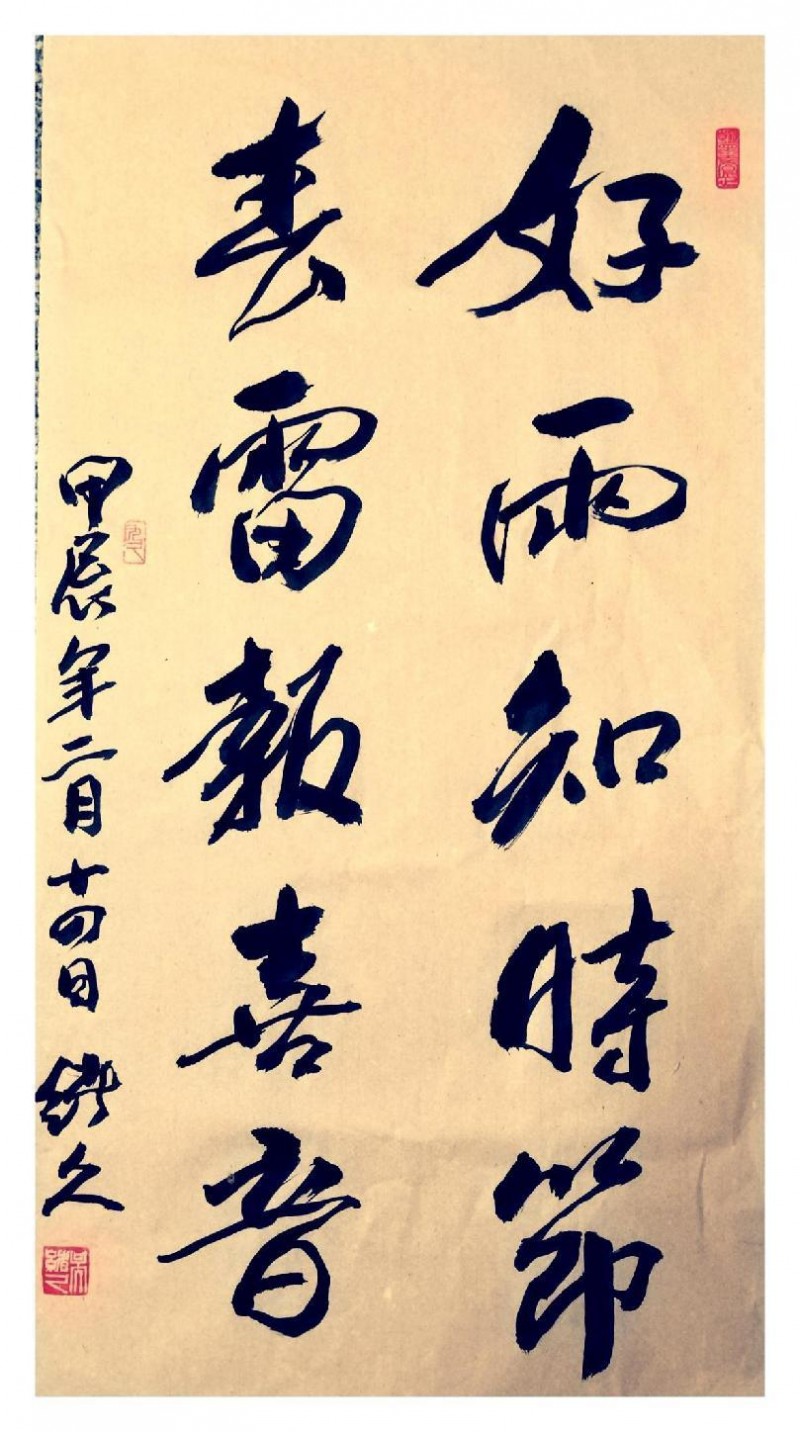 好雨知時節
春雷報喜音
甲辰年二月十四日 继久